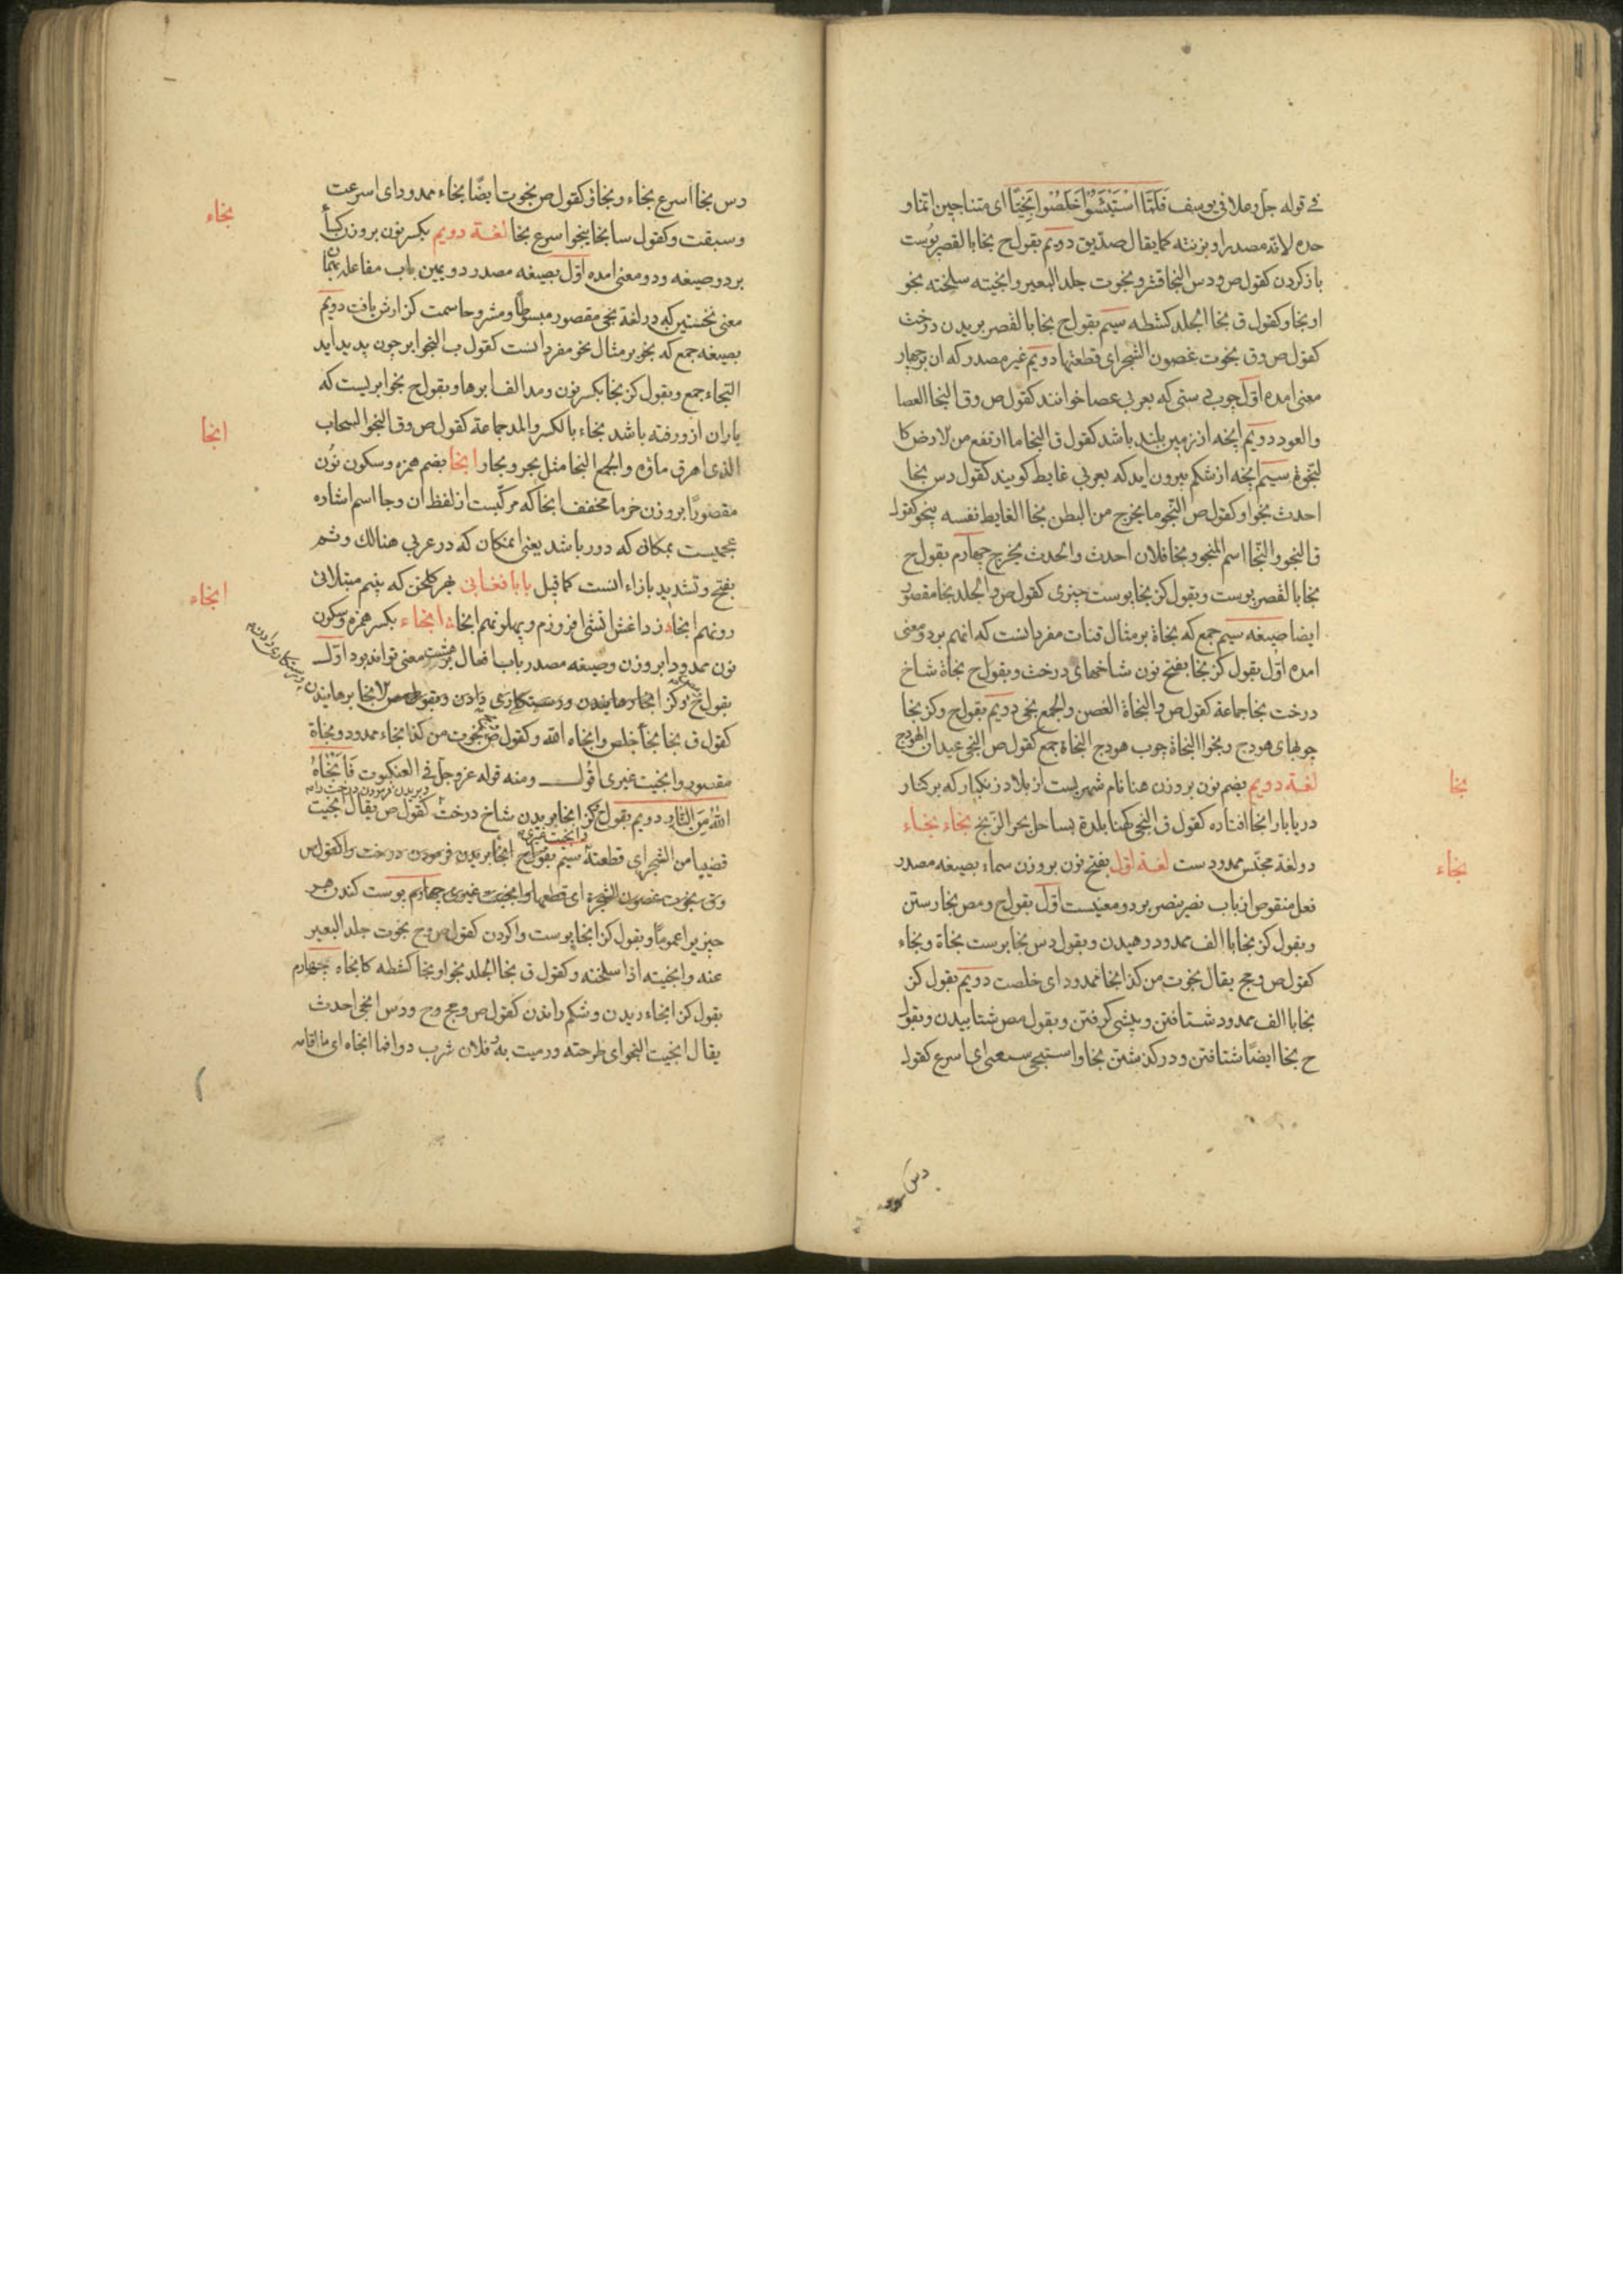 فی قوله جل وعلا فی یوسف فَلَمَّا اسْتَیْئَسُوا خَلَصُوا نَجِیًّا ای متناجین انما و
حده لانه مصدر او بزنته کما یقال صدیق دویم بقول ح نجا بالقصر پوست
باز کردن کقول ص ودس النجا قشر ونجوت جلد البعیر وانجیته سلخته نجو
او نجا وکقول ق نجا الجلد کشطه سیم بقول ح نجا بالقصر بریدن درخت
کقول ص وق نجوت غصون الشجر ای قطعتها دویم غیر مصدر که ان برچهار
معنی امده اول چوب دستی که بعربی عصا خوانند کقول ص وق النجا العصا
والعود دویم انچه از زمین بلند باشد کقول ق النجا ما ارتفع من لارض کا
لنجوة سیم انچه از شکم بیرون اید که بعربی غایط کویند کقول دس نجا
احدث نجوا وکقول ص النجو ما یخرج من البطن نجا الغایط نفسه ینجو کقول
ق النجو والنجا اسم المنجو ونجا فلان احدث والحدث یخرج چهارم بقول ح
نجا بالقصر پوست وبقول کز نجا پوست چیزی کقول ص والجلد نجا مقصور
ایضا صیغه سیم جمع که نجاة بر مثال قنات مفرد انست که انهم بر دو معنی
امده اول بقول کز نجا بفتح نون شاخهای درخت وبقول ح نجاة شاخ
درخت نجا جماعة کقول ص والنجاة الغصن والجمع نجی دویم بقول ح وکز نجا
چوبهای هودج ونجوا النجاة چوب هودج النجاة جمع کقول ص النجی عیدان الهودج
لغة دویم بضم نون بر وزن هنا نام شهریست از بلاد زنکبار که بر کنار
دریا بار انجا افتاده کقول ق النجی کهنا بلدة بساحل بحر الزنج نجاء نجاء
نجا
دو لغة مجنس ممدودست لغة اول بفتح نون بر وزن سماء بصیغه مصدر
نجاء
فعل منقوص از باب نصر ینصر بر دو معنیست اول بقول ح ومص نجا رستن
وبقول کز نجا با الف ممدود رهیدن وبقول دس نجا برست نجاة ونجاء
کقول ص وجح یقال نجوت من کذا نجا ممدود ای خلصت دویم بقول کز
نجا با الف ممدود شتافتن وپیشی کرفتن وبقول مص شتابیدن وبقول
ح نجا ایضا شتافتن ودر کذشتن نجا واستنجی بمعنی ای اسرع کقول
دس
دس نجا اسرع نجاء ونجاؤ کقول ص نجوت ایضا نجاء ممدود ای اسرعت
نجاء
وسبقت وکقول سا نجا ینجوا سرع نجا لغة دویم بکسر نون بر وزن کسا
بر دو صیغه ودو معنی امده اول بصیغه مصدر دویمین باب مفاعله بهمان
معنی نخستین که در لغة نجی مقصور مبسوطا ومشروحا سمت کزارش یافت دویم
بصیغه جمع که نجو بر مثال نحو مفرد انست کقول ب النجوا بر چون پدید اید
النجاء جمع وبقول کز نجا بکسر نون ومد الف ابرها وبقول ح نجوا بریست که
باران ازو رفته باشد نجاء بالکسر والمد جماعة کقول ص وق النجو السحاب
انجا
الذی اهرق ماؤه والجمع النجا مثل بحر وبحار انجا بضم همزه وسکون نون
مقصورا بر وزن خرما مخفف انجا که مرکبست از لفظ ان وجا اسم اشاره
عجمیست بمکانی که دور باشد یعنی انمکان که در عربی هنالک وثم
بفتح وتشدید بازاء انست کما قیل بابا فغانی بهر کلخن که بینم مبتلائی
انجاء
رو نهم انجا ز داغش اتشی افروزم و پهلو نهم انجا انجاء بکسر همزه وسکون
نون ممدودا بر وزن وصیغه مصدر باب افعال بر هشت معنی تواند بود اول
بقول ح وکز انجا رهانیدن ورستکاری دادن وبقول مص لانجا برهانیدن
کقول ق نجا نجاء خلص وانجاه الله وکقول ص نجوت من کذا نجاء ممدود ونجاة
مقصور وانجیت غیری اقول ومنه قوله عز وجل فی العنکبوت فَاَنْجٰاهُ
اللهُ مِنَ النّٰارِ دویم بقول ح کز انجا بریدن شاخ درخت کقول ص یقال انجیت
قضیبا من الشجر ای قطعته سیم بقول ح انجا بریدن فرمودن درخت را کقول ص
وق نجوت غصون الشجرة ای قطعها وانجیت غیری چهارم پوست کندن هر
چیز یرا عموما وبقول کز انجا پوست واکردن کقول ص وح نجوت جلد البعیر
عنه وانجیته اذا سلخته وکقول ق نجا الجلد نجوا ونجا کشطه کانجاه چهارم
بقول کز انجاء ریدن وشکم راندن کقول ص وجح وح ودس انجی احدث
یقال انجیت النجو ای طرحته ورمیت به فلان شرب دوا فما انجاه ای ما اقامه